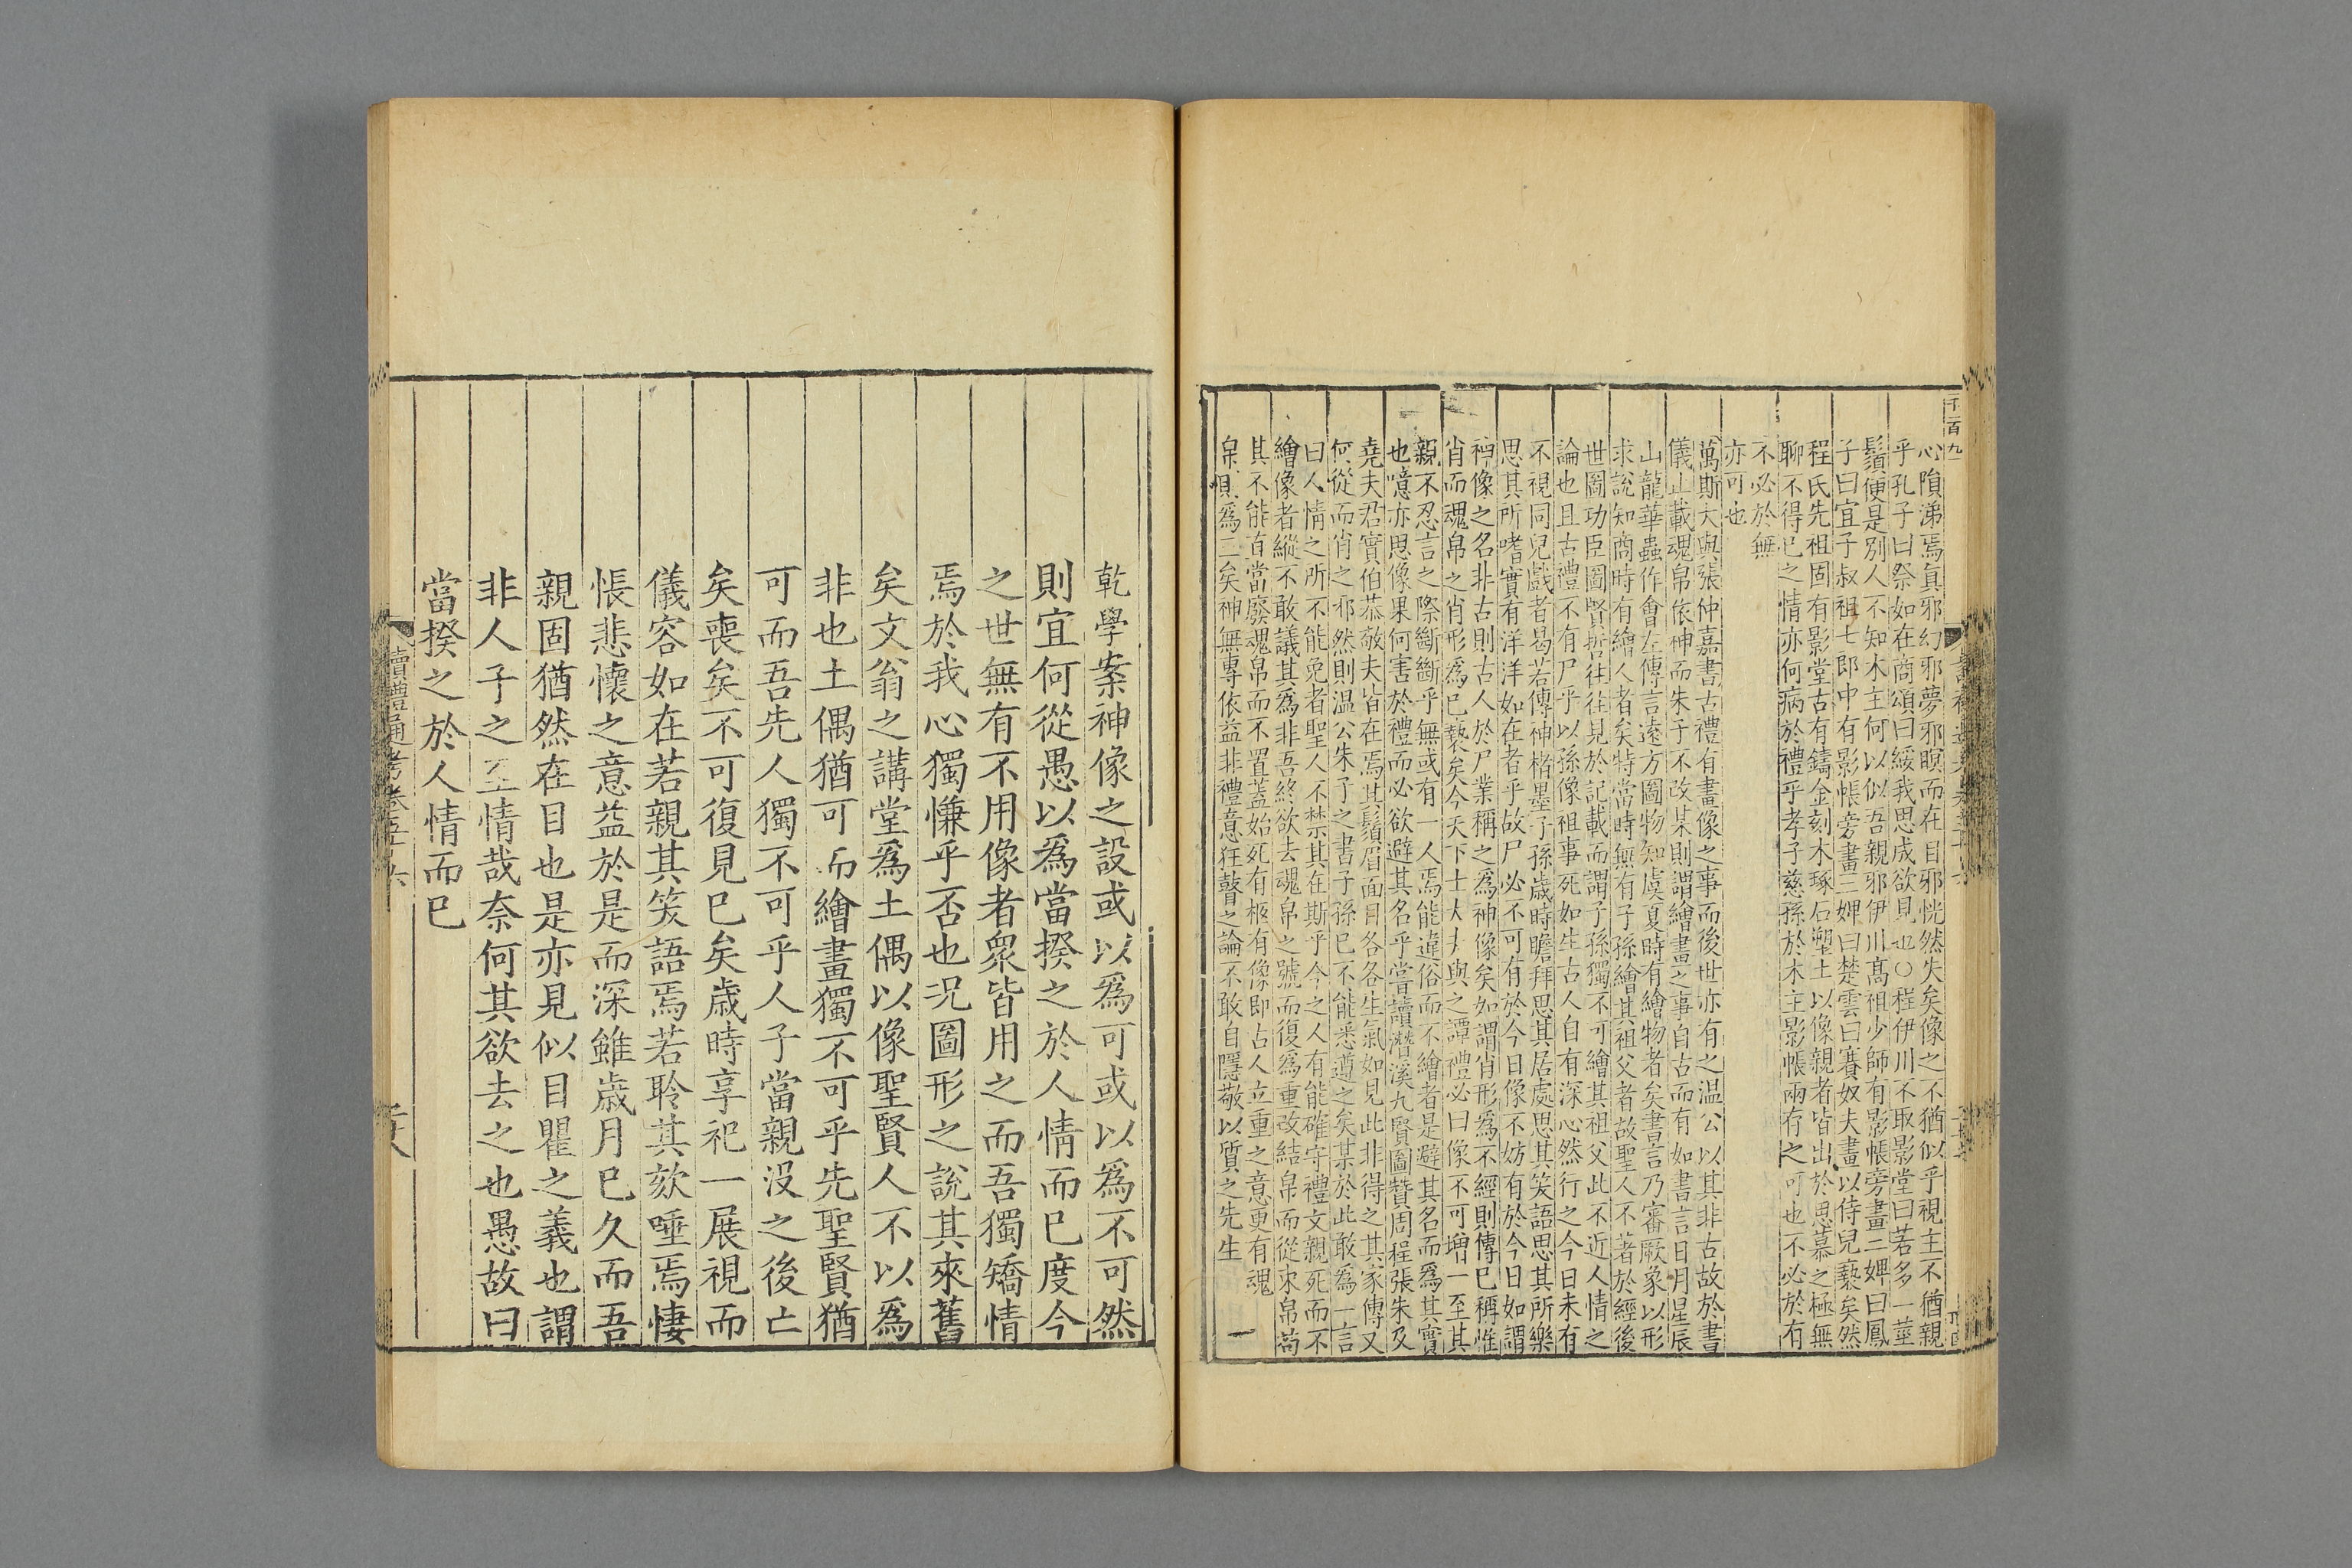 心隕涕焉眞邪幻邪夢邪瞑而在目邪恍然失矣像之不猶似乎視主不猶親
乎孔子曰祭如在商頌曰綏我思成欲見也○程伊川不取影堂曰若多一莖
鬚便是別人不知木主何以似吾親邪伊川高祖少師有影帳旁畫二婢曰鳳
子曰宜子叔祖七郎中有影帳旁畫二婢曰楚雲曰賽奴夫畫以侍兒褻矣然
程氏先祖固有影堂古有鑄金刻木琢石塑土以像親者皆出於思慕之極無
聊不得已之情亦何病於禮乎孝子慈孫於木主影帳兩存之可也不必於有
不必於無
亦可也
萬斯大與張仲嘉書古禮有畫像之事而後世亦有之温公以其非古故於書
儀止載魂帛依神而朱子不改某則謂繪畫之事自古而有如書言日月星辰
山龍華蟲作會左傳言遠方圖物知虞夏時有繪物者矣書言乃審厥象以形
求說知商時有繪人者矣特當時無有子孫繪其祖父者故聖人不著於經後
世圖功臣圖賢哲往往見於記載而謂子孫獨不可繪其祖父此不近人情之
論也且古禮不有尸乎以孫像祖事死如生古人自有深心然行之今日未有
不視同兒戲者曷若傳神楮墨子孫歲時瞻拜思其居處思其笑語思其所樂
思其所嗜實有洋洋如在者乎故尸必不可有於今日像不妨有於今日如謂
神像之名非古則古人於尸業稱之爲神像矣如謂肖形爲不經則傳已稱惟
肖而魂帛之肖形爲已褻矣今天下士大夫與之譚禮必曰像不可增一至其
親不忍言之際斷斷乎無或有一人焉能違俗而不繪者是避其名而爲其實
也噫亦思像果何害於禮而必欲避其名乎嘗讀潛溪九賢圖贊周程張朱及
堯夫君實伯恭敬夫皆在焉其鬚眉面目各各生氣如見此非得之其家傳又
何從而肖之邪然則温公朱子之書子孫已不能悉遵之矣某於此敢爲一言
曰人情之所不能免者聖人不禁其在斯乎今之人有能確守禮文親死而不
繪像者縱不敢議其爲非吾終欲去魂帛之號而復爲重改結帛而從束帛茍
其不能直當廢魂帛而不置蓋始死有柩有像即古人立重之意更有魂
帛則爲二矣神無專依益非禮意狂瞽之論不敢自隱敬以質之先生
乾學案神像之設或以爲可或以爲不可然
則宜何從愚以爲當揆之於人情而已度今
之世無有不用像者衆皆用之而吾獨矯情
焉於我心獨慊乎否也况圖形之說其來舊
矣文翁之講堂爲土偶以像聖賢人不以爲
非也土偶猶可而繪畫獨不可乎先聖賢猶
可而吾先人獨不可乎人子當親没之後亡
矣喪矣不可復見已矣歲時享祀一展視而
儀容如在若親其笑語焉若聆其欬唾焉悽
悵悲懷之意益於是而深雖歲月已久而吾
親固猶然在目也是亦見似目瞿之義也謂
非人子之至情哉奈何其欲去之也愚故曰
當揆之於人情而已
讀禮通考卷五十六